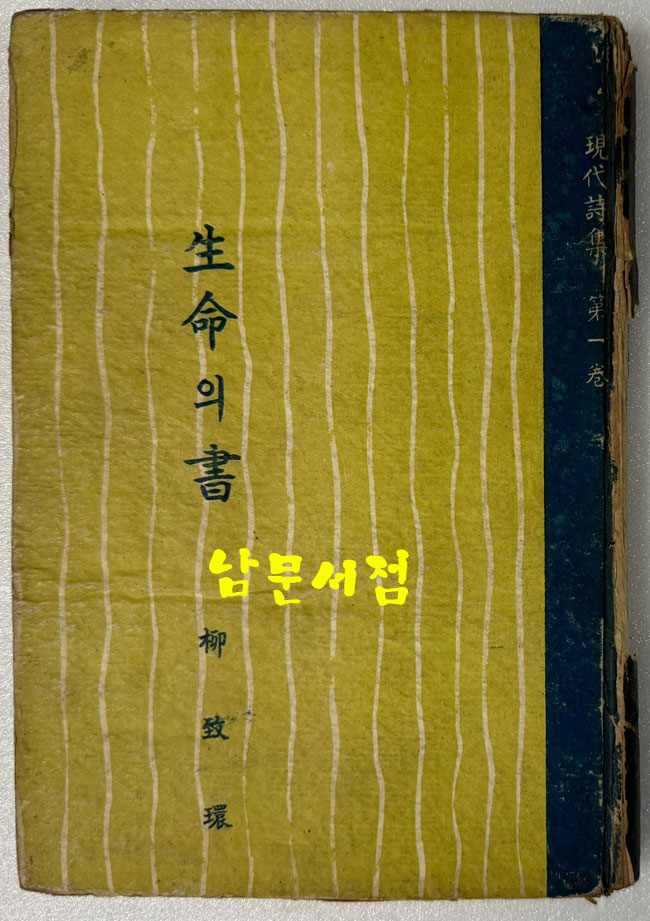 現代詩集 第一卷
生命의書
柳致環
남문서점